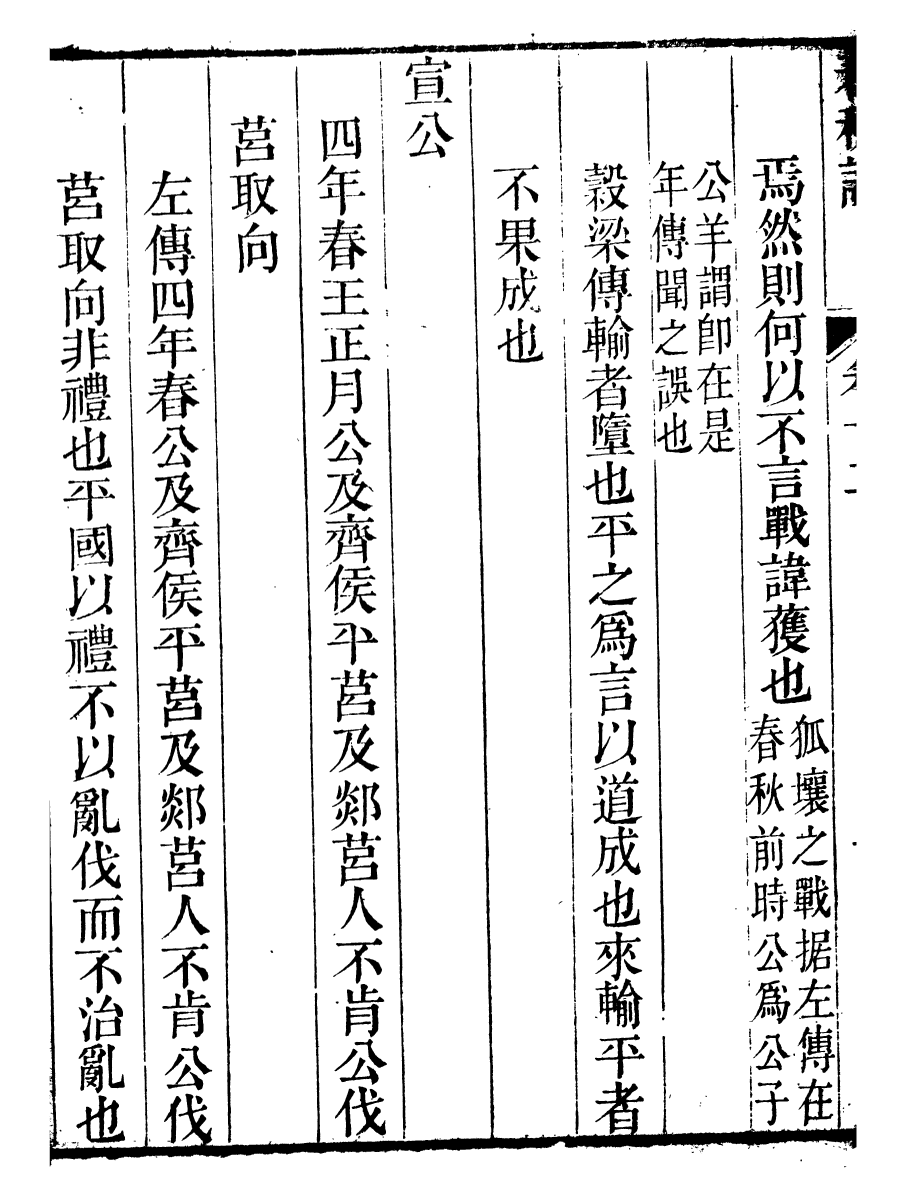 焉然則何以不言戰諱獲也狐壤之戰据左傳在
春秋前時公爲公子
公羊謂卽在是
年傳聞之誤也
穀梁傳輸者墮也平之爲言以道成也來輸平者
不果成也
宣公
四年春王正月公及齊侯平莒及郯莒人不肯公伐
莒取向
左傳四年春公及齊侯平莒及郯莒人不肯公伐
莒取向非禮也平國以禮不以亂伐而不治亂也